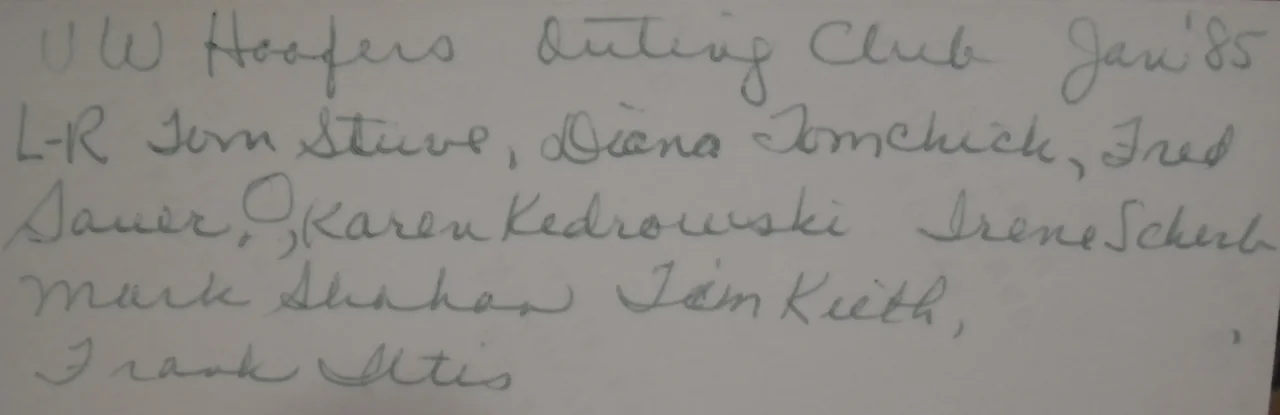 UW Hoofers Outing Club Jan '85
L-R Tom Stuve, Diana Tomchick, Fred
Sauer, ?, Karen Kedrowski Irene Scherb
Mark Shahan Tim Kieth,
Frank Iltis